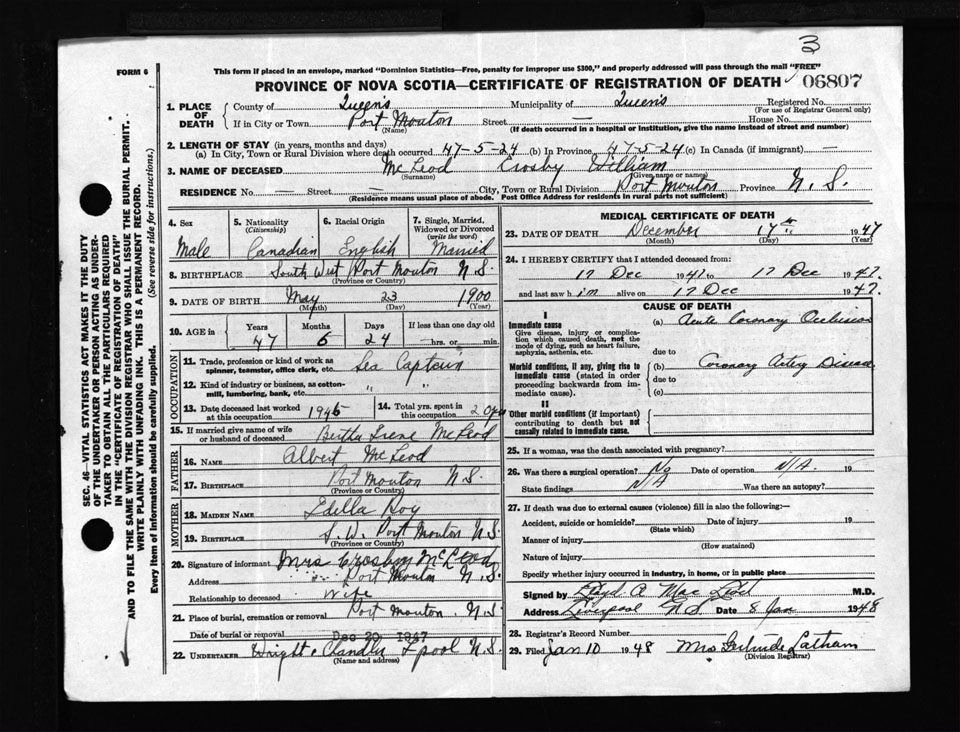 3
FORM 6
This form if placed in an envelope, marked "Dominion Statistics—Free, penalty for improper use $300," and properly addressed will pass through the mail "FREE"
PROVINCE OF NOVA SCOTIA—CERTIFICATE OF REGISTRATION OF DEATH
06807
1. PLACE OF DEATH
County of Queen's Municipality of Queen's Registered No.
(For use of Registrar General only)
If in City or Town Port Mouton Street — House No.
(Name) (If death occurred in a hospital or institution, give the name instead of street and number)
2. LENGTH OF STAY (in years, months and days)
(a) In City, Town or Rural Division where death occurred 47-5-24 (b) In Province 47-5-24 (c) In Canada (if immigrant) —
3. NAME OF DECEASED McLeod Crosby William
(Surname) (Given name or names)
RESIDENCE No. — Street — City, Town or Rural Division Port Mouton Province N. S.
(Residence means usual place of abode. Post Office Address for residents in rural parts not sufficient)
4. Sex
Male
5. Nationality
(Citizenship)
Canadian
6. Racial Origin
English
7. Single, Married, Widowed or Divorced
(write the word)
Married
8. BIRTHPLACE South West Port Mouton N.S.
(Province or Country)
9. DATE OF BIRTH May 23 1900
(Month) (Day) (Year)
10. AGE in
Years Months Days If less than one day old
47 6 24 hrs. or min.
OCCUPATION
11. Trade, profession or kind of work as spinner, teamster, office clerk, etc. Sea Captain
12. Kind of industry or business, as cotton-mill, lumbering, bank, etc. " "
13. Date deceased last worked at this occupation 1945
14. Total yrs. spent in this occupation 20 yrs
15. If married give name of wife or husband of deceased Bertha Irene McLeod
FATHER
16. NAME Albert McLeod
17. BIRTHPLACE Port Mouton N.S.
(Province or Country)
MOTHER
18. MAIDEN NAME Edella Roy
19. BIRTHPLACE S. W. Port Mouton N.S.
(Province or Country)
20. Signature of informant Mrs Crosby McLeod
Address Port Mouton N.S.
Relationship to deceased Wife
21. Place of burial, cremation or removal Port Mouton, N.S.
Date of burial or removal Dec 20 1947
22. UNDERTAKER Wright & Chandler L'pool N.S.
(Name and address)
MEDICAL CERTIFICATE OF DEATH
23. DATE OF DEATH December 17th 1947
(Month) (Day) (Year)
24. I HEREBY CERTIFY that I attended deceased from:
17 Dec 1947 to 17 Dec 1947.
and last saw him alive on 17 Dec 1947.
CAUSE OF DEATH
I
Immediate cause
Give disease, injury or complication which caused death, not the mode of dying, such as heart failure, asphyxia, asthenia, etc.
(a) Acute Coronary Occlusion
due to
Morbid conditions, if any, giving rise to immediate cause (stated in order proceeding backwards from immediate cause).
(b) Coronary Artery Disease
due to
(c)
II
Other morbid conditions (if important) contributing to death but not causally related to immediate cause.
25. If a woman, was the death associated with pregnancy?
26. Was there a surgical operation? No Date of operation N/A. 19
State findings N/A Was there an autopsy?
27. If death was due to external causes (violence) fill in also the following:—
Accident, suicide or homicide? Date of injury 19
(State which)
Manner of injury
(How sustained)
Nature of injury
Specify whether injury occurred in industry, in home, or in public place
Signed by Lloyd A Mac Leod M.D.
Address Liverpool N.S Date 8 Jan 1948
28. Registrar's Record Number
29. Filed Jan 10 1948 Mrs Gertrude Latham
(Division Registrar)
SEC. 46—VITAL STATISTICS ACT MAKES IT THE DUTY
OF THE UNDERTAKER OR PERSON ACTING AS UNDER-
TAKER TO OBTAIN ALL THE PARTICULARS REQUIRED
IN THE "CERTIFICATE OF REGISTRATION OF DEATH"
AND TO FILE THE SAME WITH THE DIVISION REGISTRAR WHO SHALL ISSUE THE BURIAL PERMIT.
WRITE PLAINLY WITH UNFADING INK. THIS IS A PERMANENT RECORD.
Every item of information should be carefully supplied. (See reverse side for instructions.)